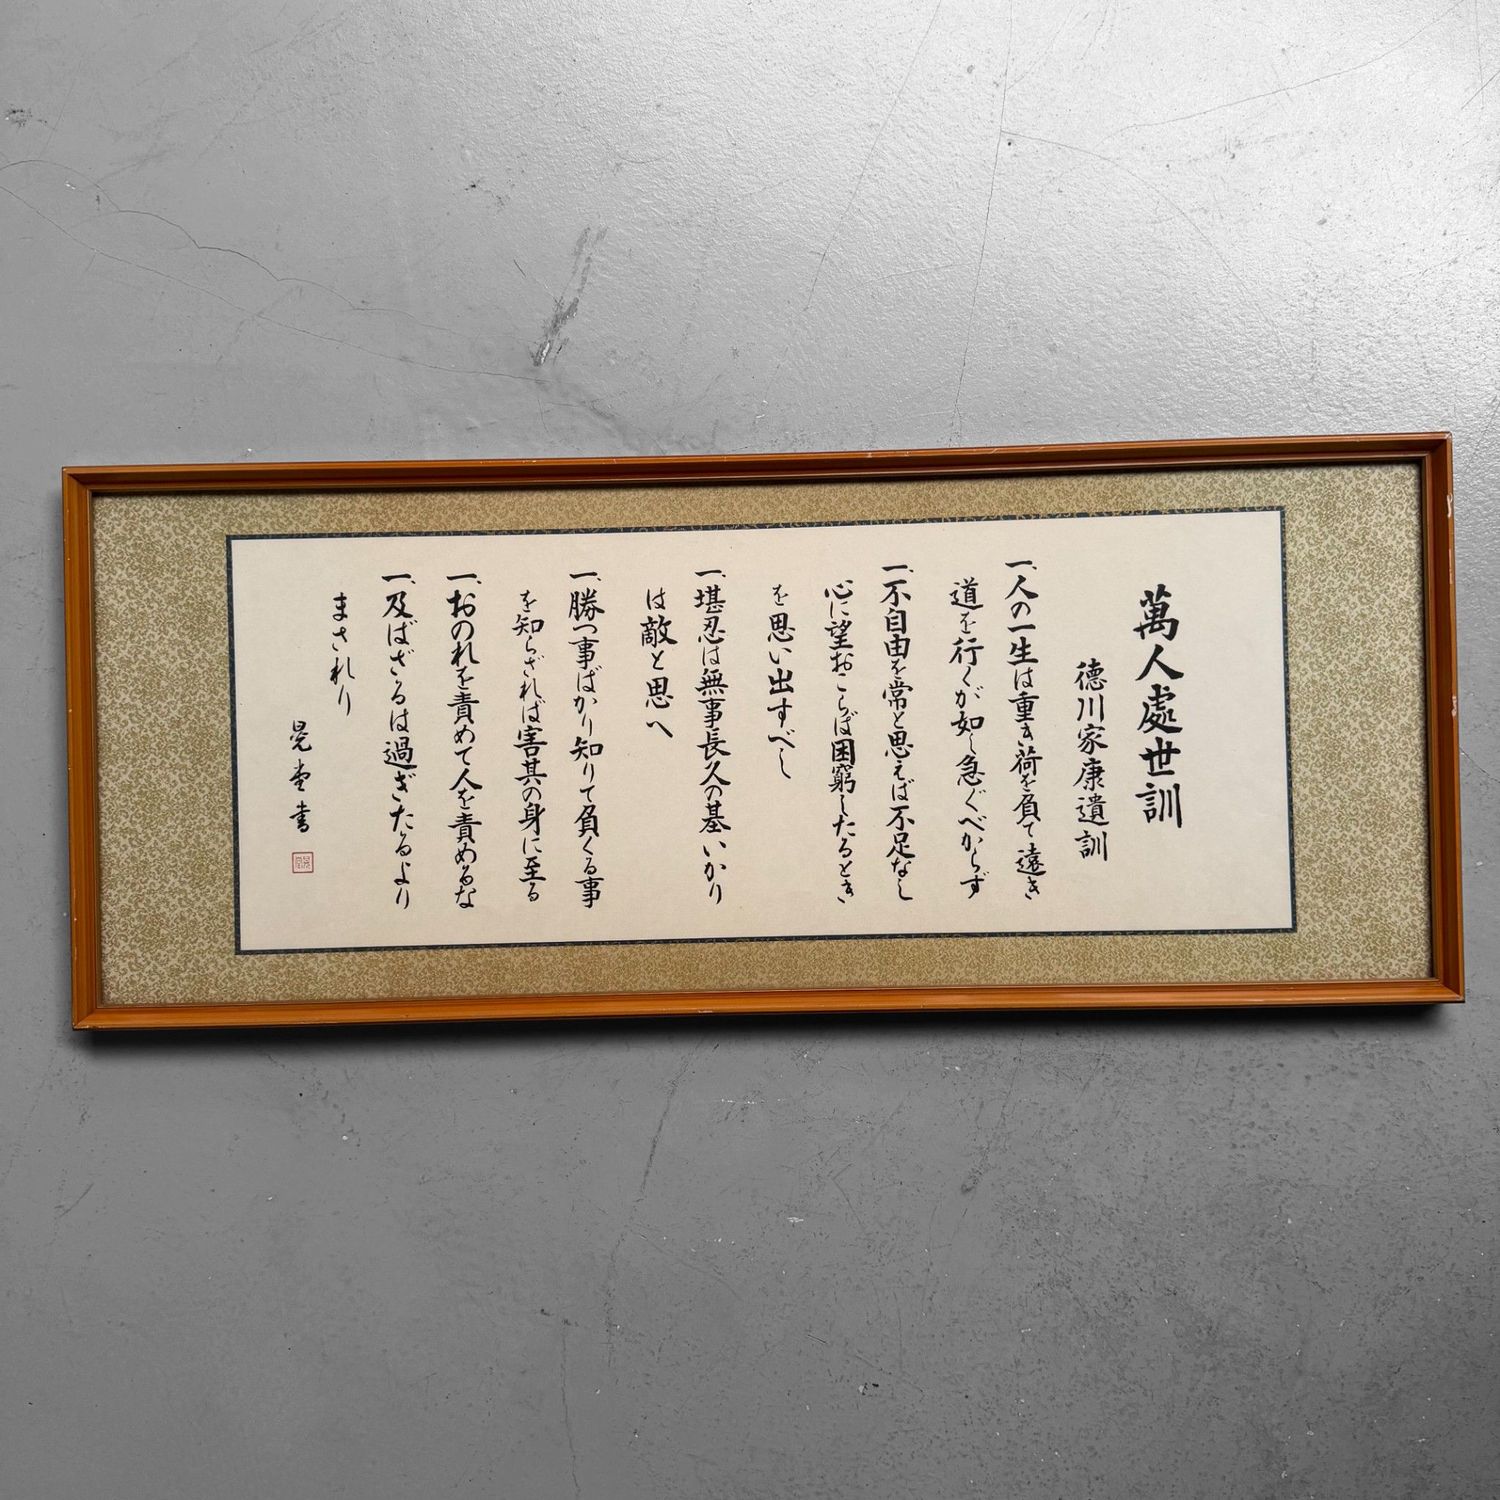 萬人處世訓
德川家康遺訓
一、人の一生は重き荷を負て遠き
道を行くが如し急ぐべからず
一、不自由を常と思えば不足なし
心に望おこらば困窮したるとき
を思い出すべし
一、堪忍は無事長久の基いかり
は敵と思へ
一、勝つ事ばかり知りて負くる事
を知らざれば害其の身に至る
一、おのれを責めて人を責めるな
一、及ばざるは過ぎたるより
まされり
晃堂書